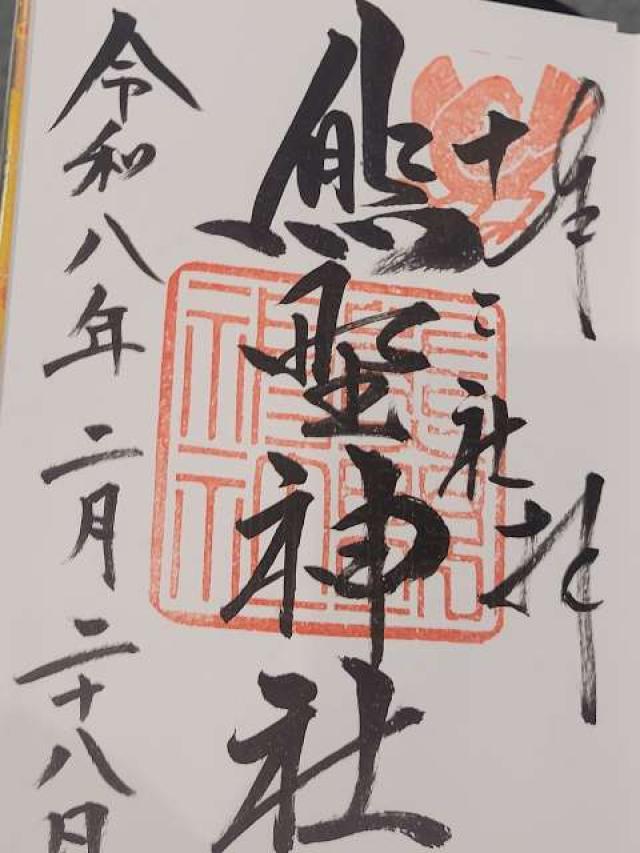 奉拝
十二社
熊野神社
令和八年二月二十八日